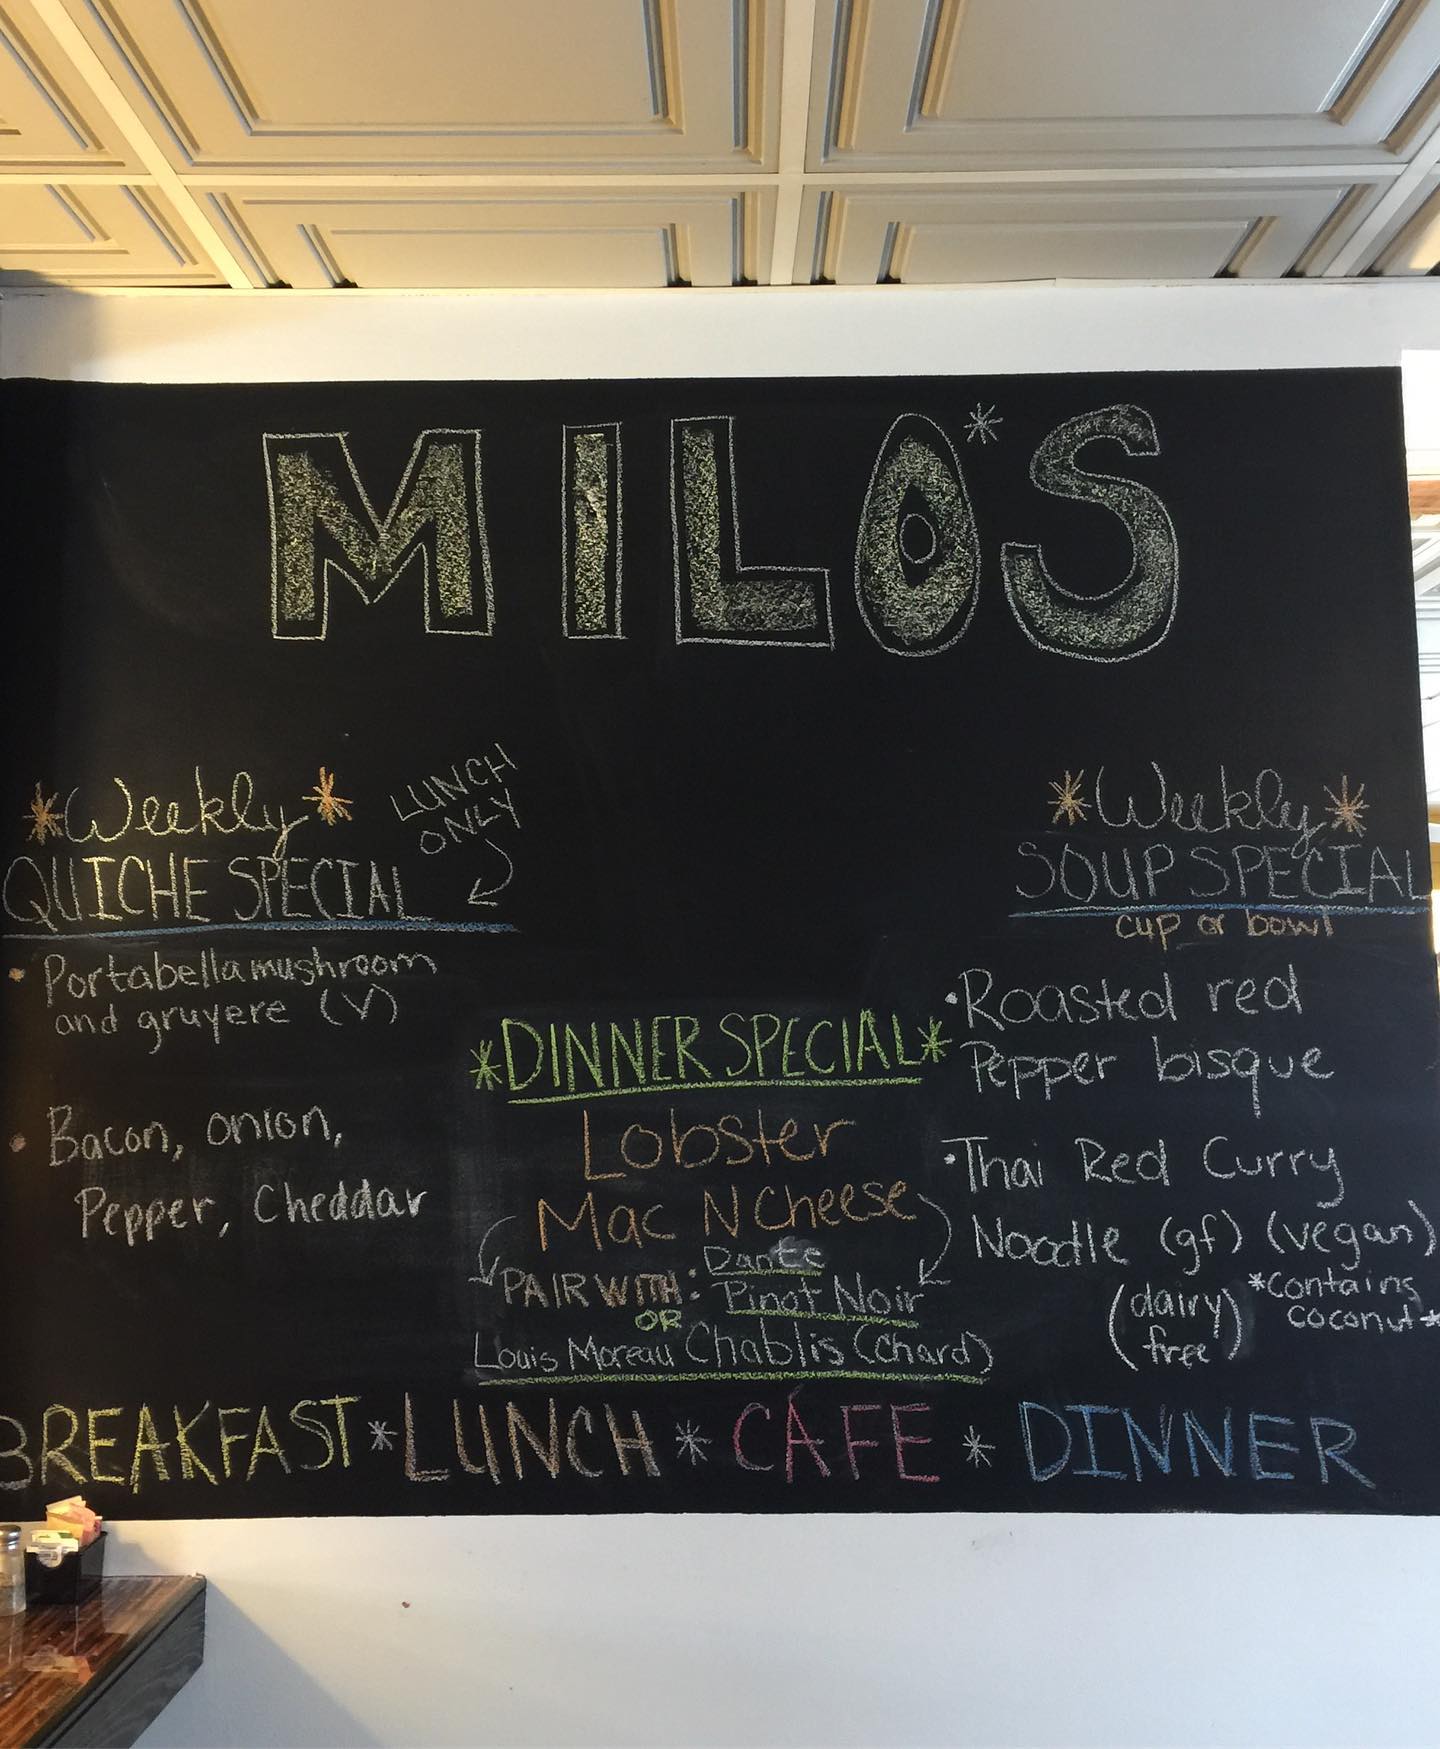 MILO*S
*Weekly*
QUICHE SPECIAL
LUNCH
ONLY
• Portabella mushroom
and gruyere (V)
• Bacon, onion,
Pepper, Cheddar
*DINNER SPECIAL*
Lobster
Mac N Cheese
PAIR WITH: Dante
Pinot Noir
OR
Louis Moreau Chablis (chard)
*Weekly*
SOUP SPECIAL
cup or bowl
• Roasted red
Pepper bisque
• Thai Red Curry
Noodle (gf) (vegan)
(dairy
free)
*contains
coconut*
BREAKFAST * LUNCH * CAFE * DINNER